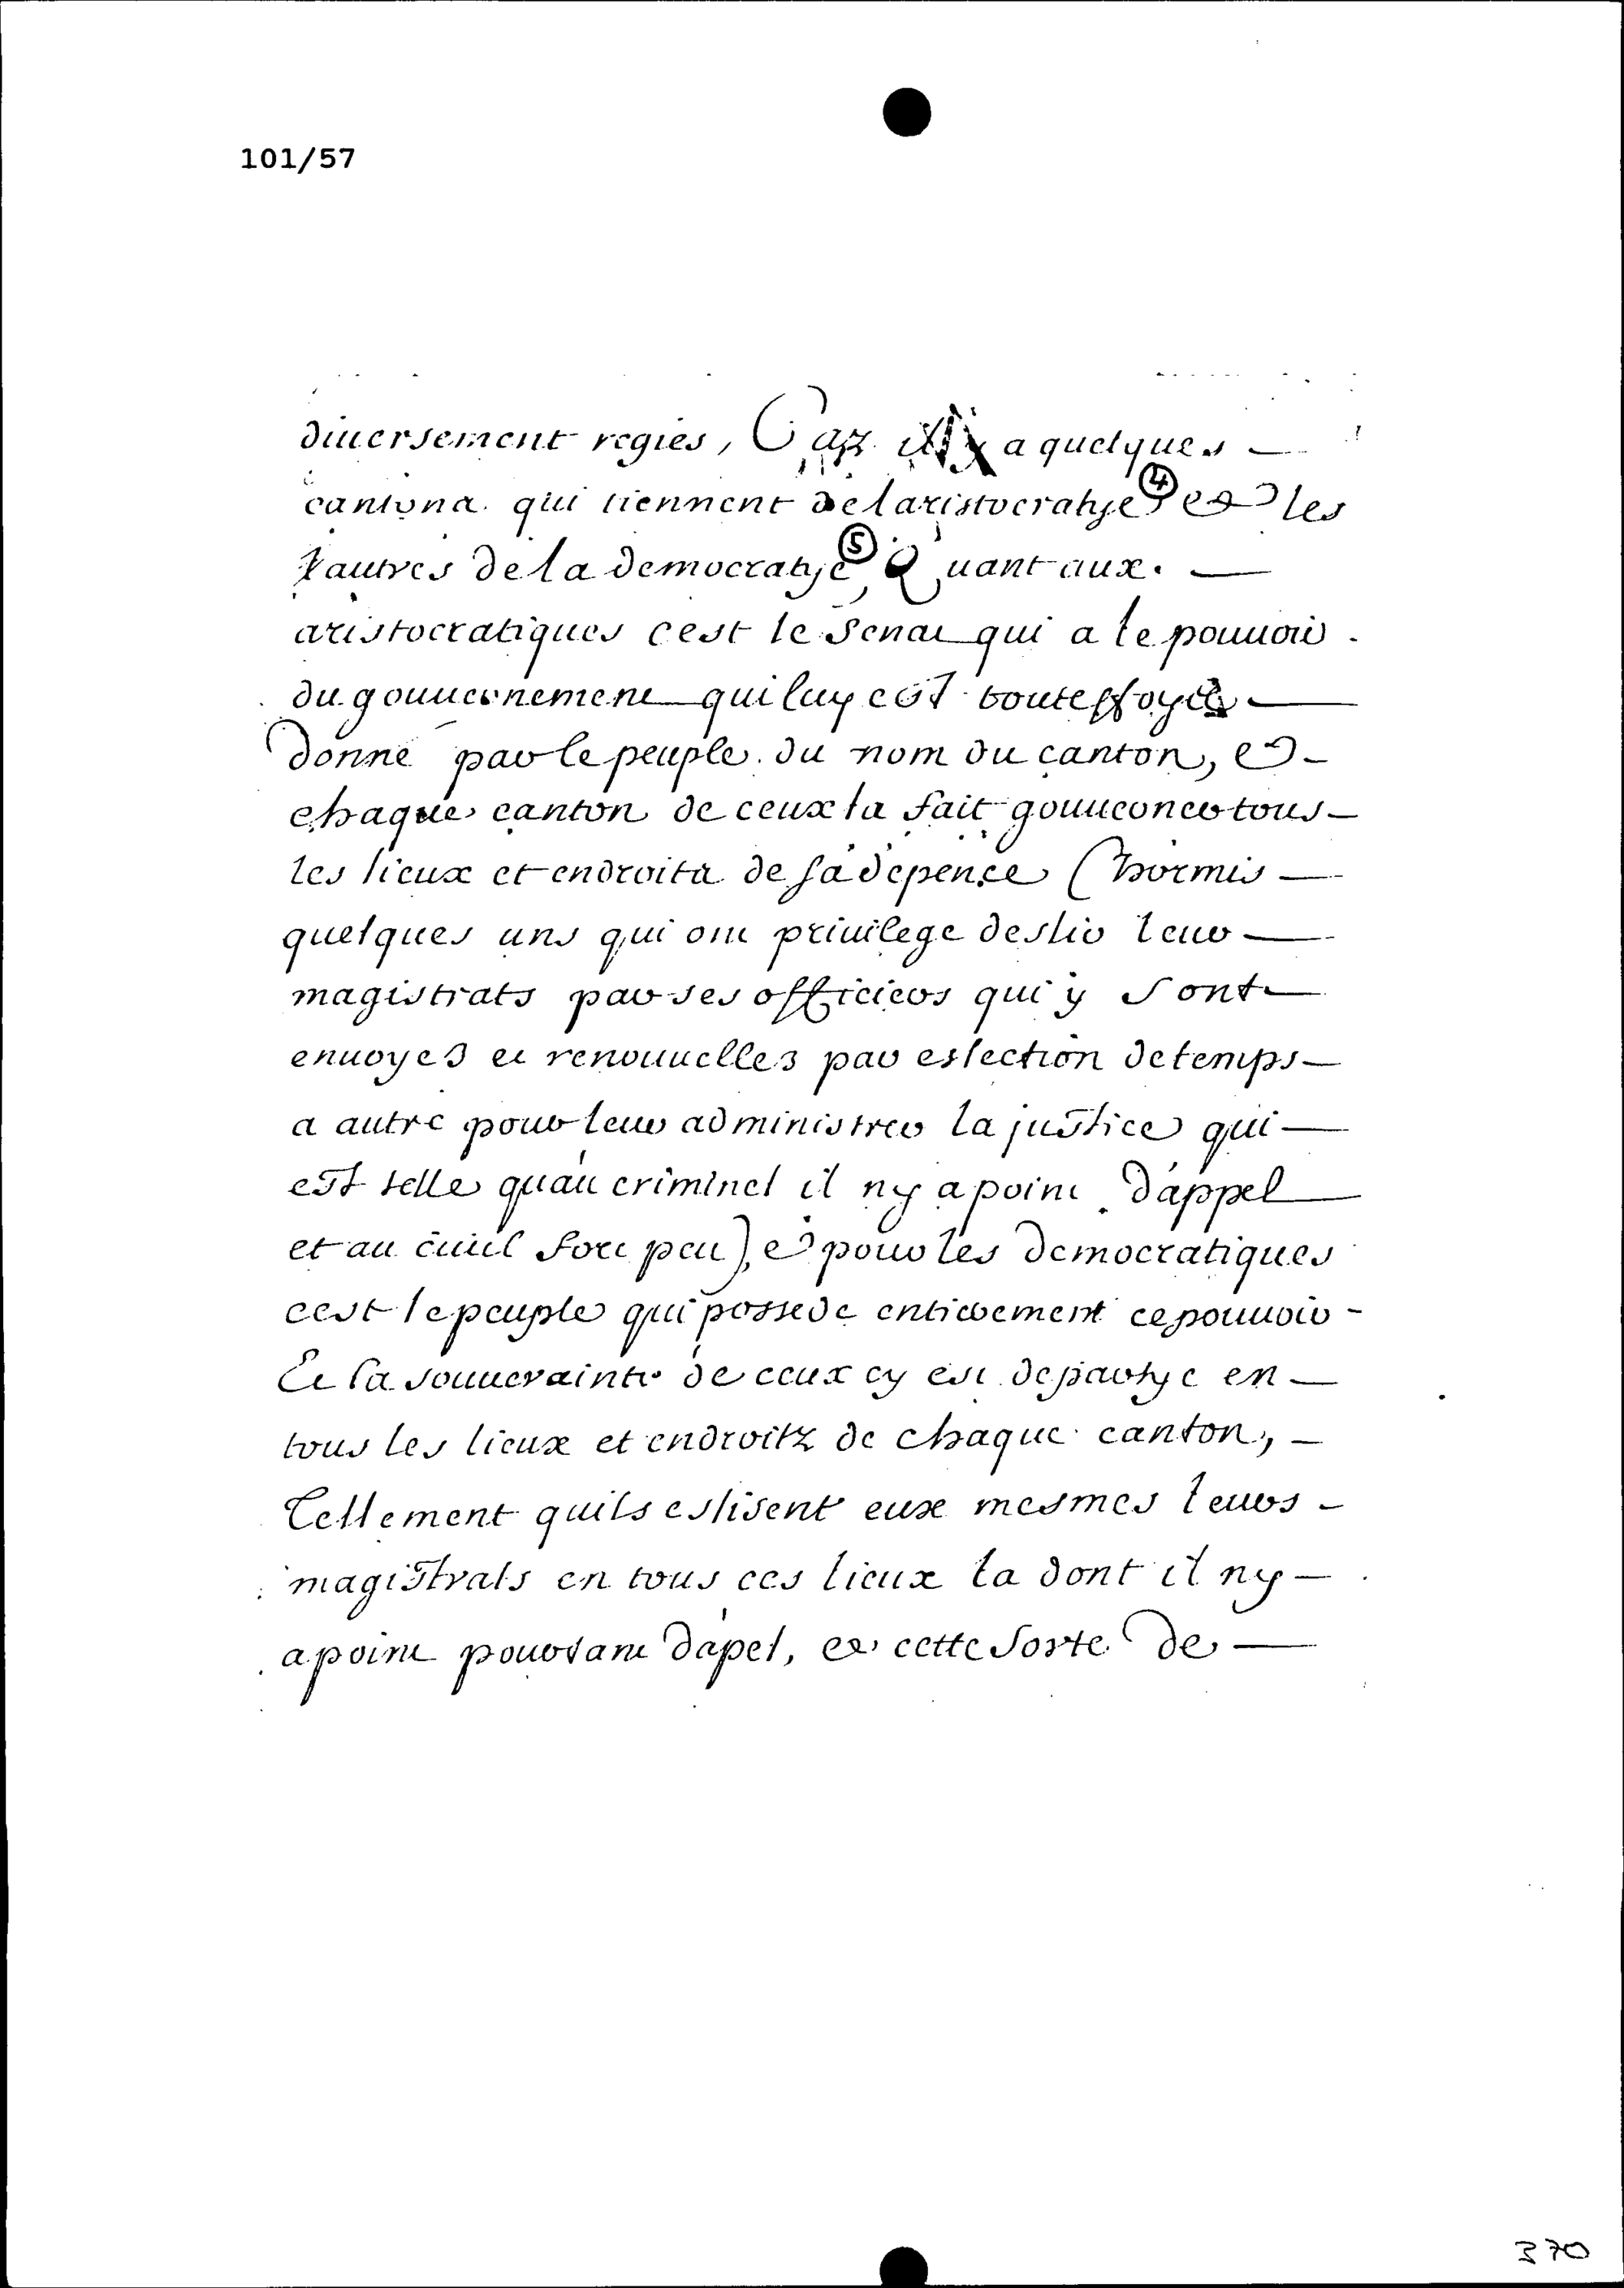 101/57
diuersement regies, Car il y a quelques
cantons qui tiennent de laristocratye ④ et les
autres de la democratye ⑤, Quant aux
aristocratiques cest le Senat qui a le pouuoir
du gouuernement qui luy est touteffoyes
donné par le peuple du nom du canton, et
chaque canton de ceux la fait gouuerner tous
les lieux et endroits de sa dépence (hormis
quelques uns qui ont priuilege deslir leur
magistrats par ses officiers qui y sont
enuoyes et renouuelles par eslection de temps
a autre pour leur administrer la justice qui
est telle quau criminel il ny a point dappel
et au ciuil fort peu), et pour les democratiques
cest le peuple qui possede entierement ce pouuoir
Et la souuerainte de ceux cy est departye en
tous les lieux et endroitz de chaque canton,
Tellement quils eslisent eux mesmes leurs
magistrats en tous ces lieux la dont il ny
a point pourtant dapel, et cette sorte de
370